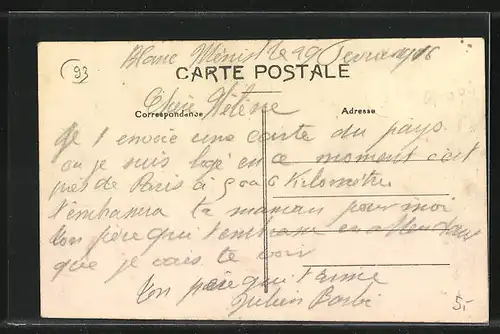 Blanc Ménil le 29 Fevrier 1916
(93)
CARTE POSTALE
Correspondance
Adresse
Chère Hélène
Je t envoie une carte du pays
ou je suis logé en ce moment c'est
près de Paris à 5 ou 6 Kilomètre
t'embrassera ta maman pour moi
ton père qui t'embrasse en attendant
que je vais te voir
ton père qui t'aime
Julien
5.-